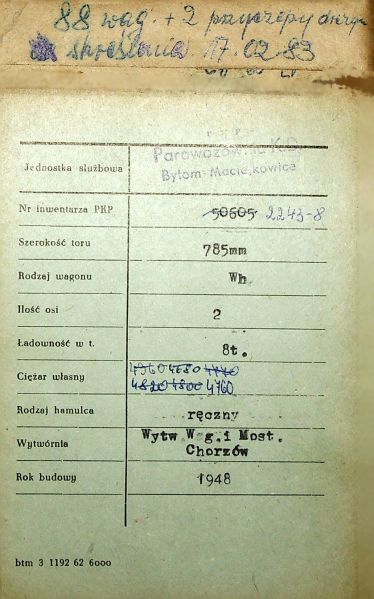 88 wag. + 2 przyczepy
skreślenia 17.02.83
Jednostka służbowa
Parowozownia K.D.
Bytom-Maciejkowice
Nr inwentarza PKP 50605 2243-8
Szerokość toru 785mm
Rodzaj wagonu Wh
Ilość osi 2
Ładowność w t. 8t.
4760
Ciężar własny
Rodzaj hamulca ręczny
Wytwórnia Wytw.Wag.i Most.
Chorzów
Rok budowy 1948
btm 3 1192 62 6000